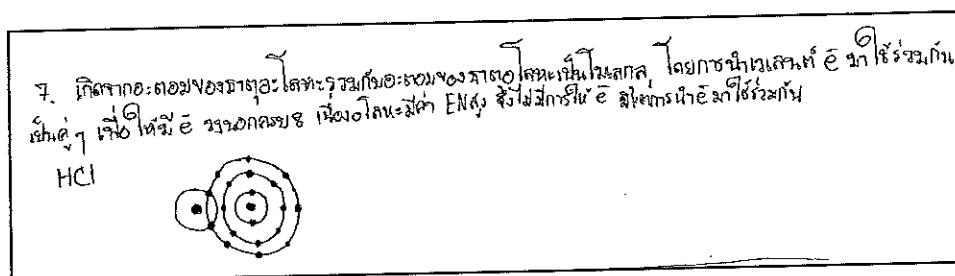 7. เกิดจากอะตอมของธาตุอะโลหะรวมกับอะตอมของธาตุอโลหะเป็นโมเลกุล โดยการนำเวเลนต์ ē มาใช้ร่วมกัน
เป็นคู่ๆ เพื่อให้มี ē วงนอกครบ 8 เนื่องอโลหะมีค่า EN สูง จึงไม่มีการให้ ē มีแต่การนำ ē มาใช้ร่วมกัน
HCl